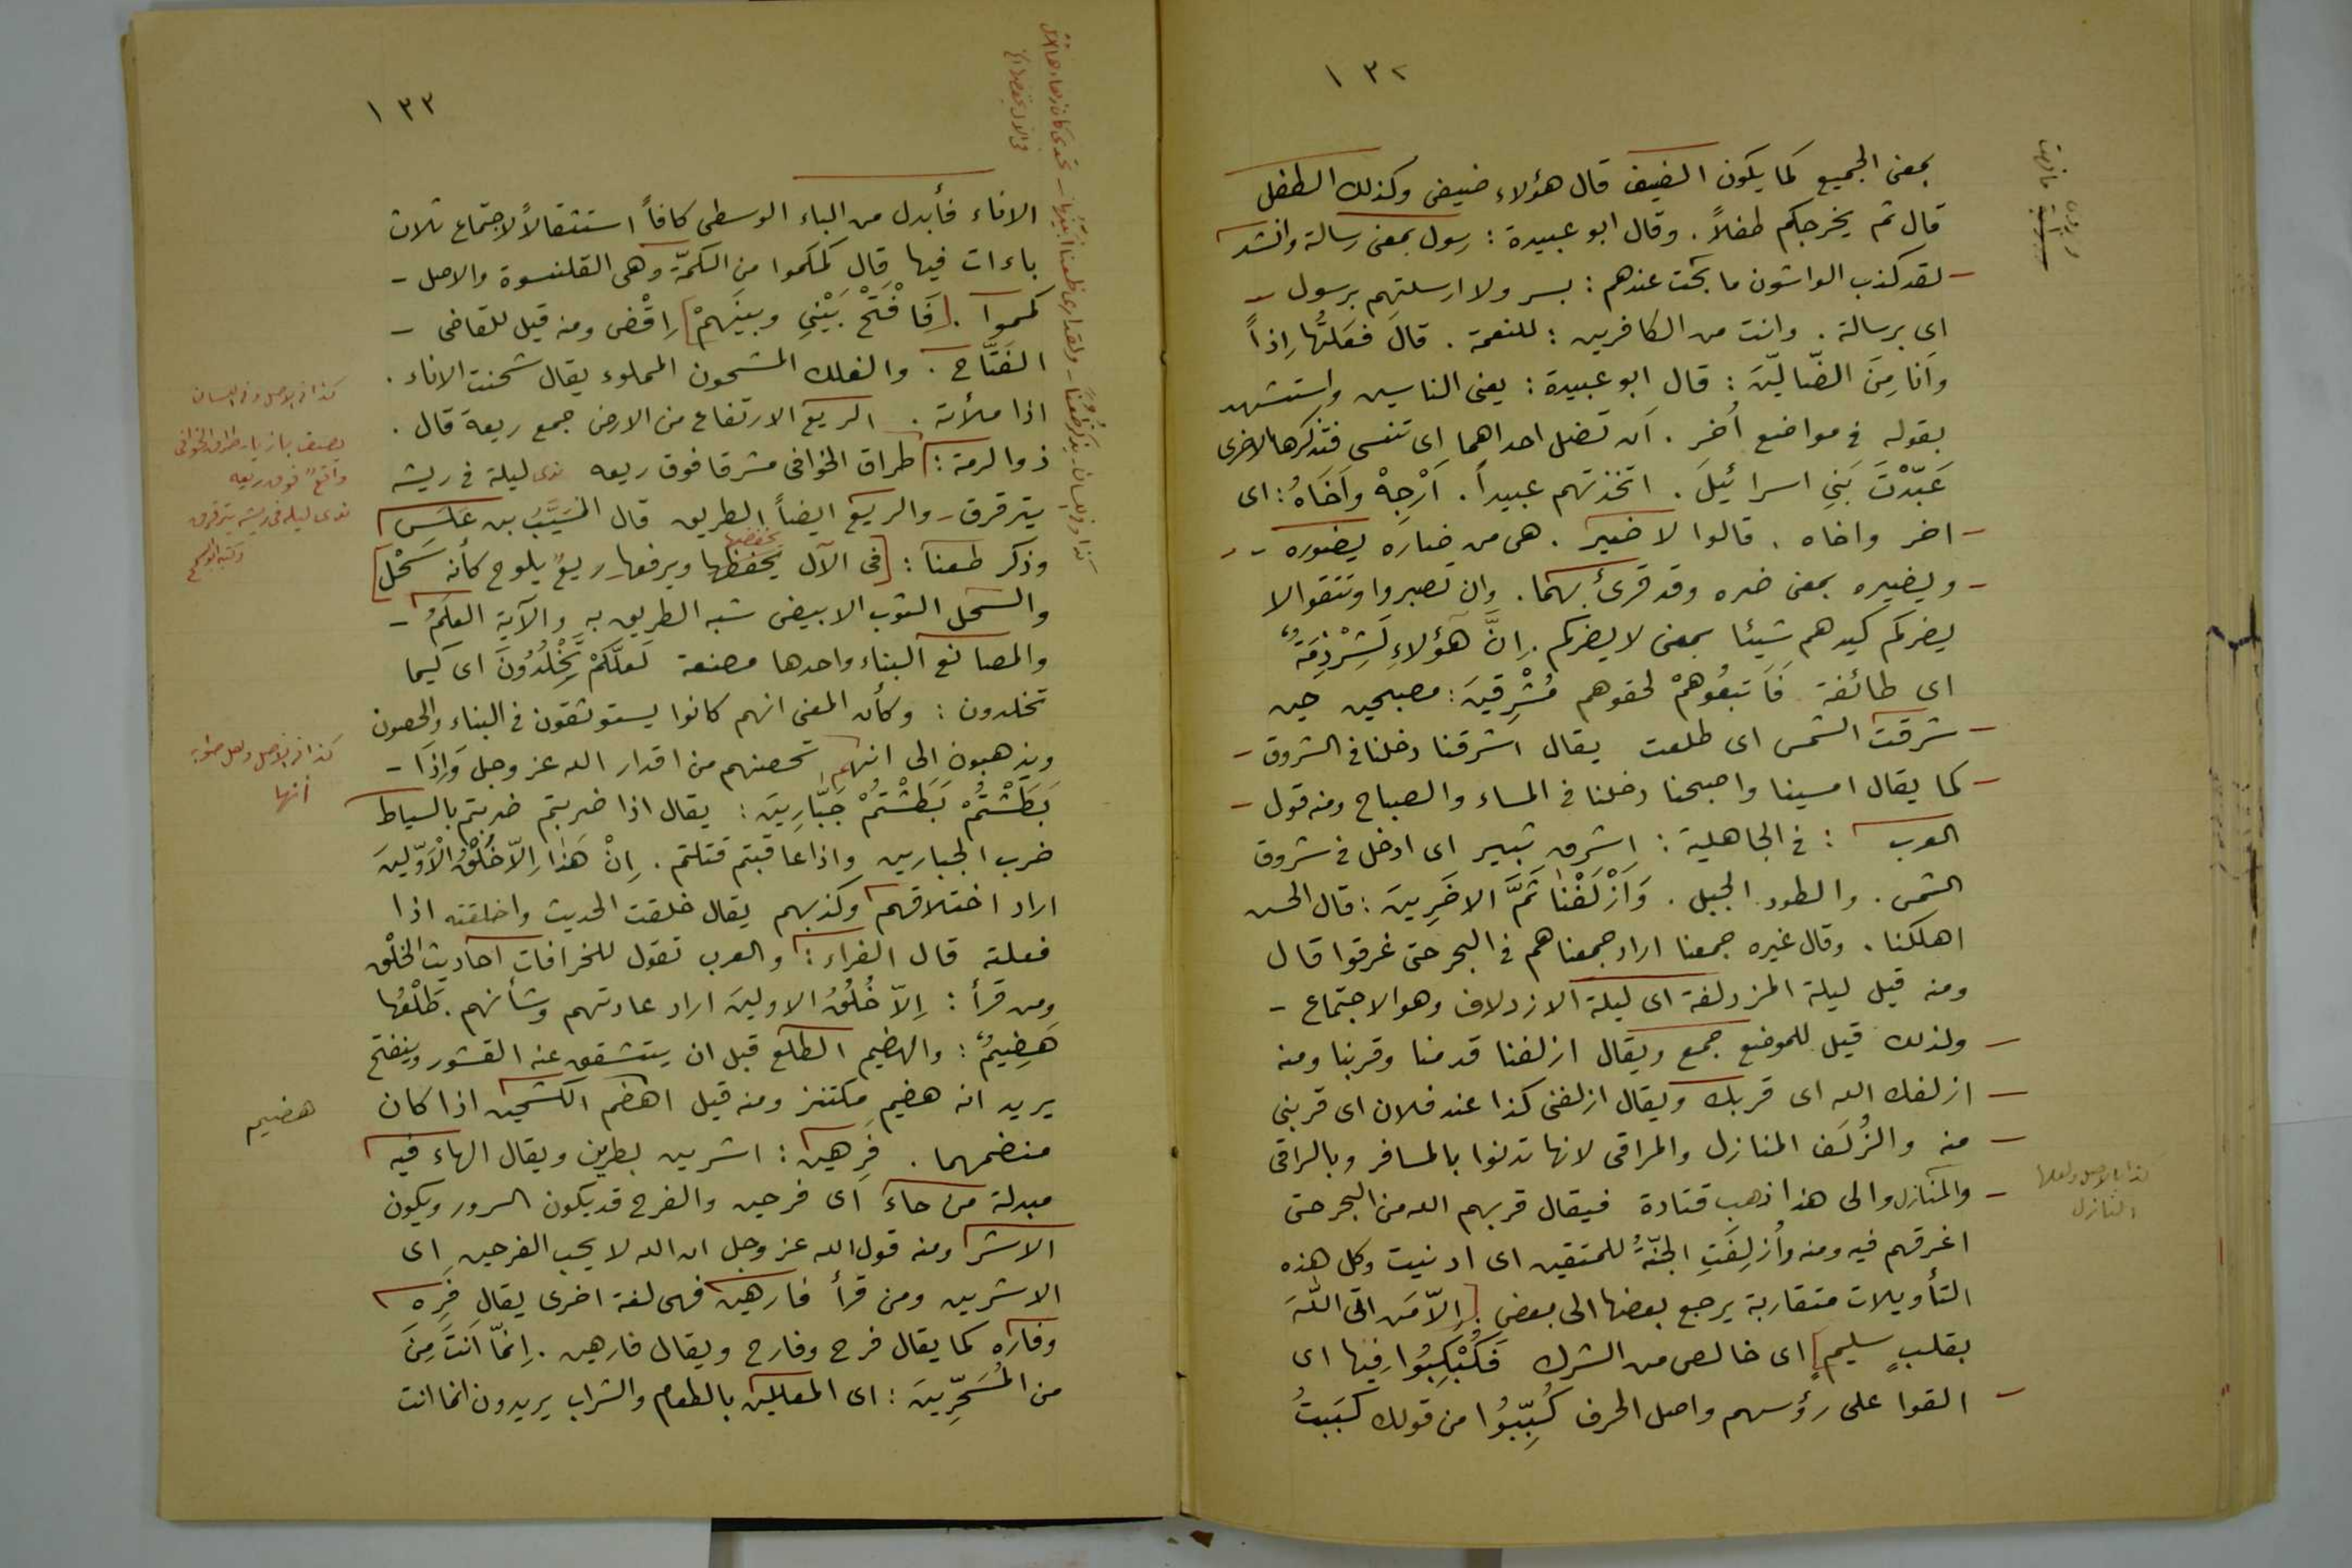 ١٣٢
بمعنى الجميع كما يكون الضيف قال هؤلاء ضيفى وكذلك الطفل
قال ثم يخرجكم طفلاً . وقال ابو عبيدة : رسول بمعنى رسالة وانشد
– لقد كذب الواشون ما بحت عندهم : بسر ولا ارسلتهم برسول –
اى برسالة . وانت من الكافرين : للنعمة . قالَ فعَلتُها اِذاً
وأنا مِنَ الضّالّينَ : قال ابو عبيدة : يعنى الناسين واستشهد
بقوله فى مواضع اُخر . أن تضل احداهما اى تنسى فتذكرها الاخرى
عَبّدْتَ بَنِى اسرائيلَ . اتخذتهم عبيداً . اَرْجِهْ واَخَاهُ : اى
– اخر واخاه . قالوا لا ضير . هى من ضاره يضوره –
– ويضيره بمعنى ضره وقد قرئ بهما . وان تصبروا وتتقوا لا
يضركم كيدهم شيئا بمعنى لا يضركم . اِنَّ هَؤُلاءِ لَشِرْذِمَةٌ
اى طائفة فَاَتبعُوهمْ لحقوهم مُشْرِقينَ : مصبحين حين
– شرقت الشمس اى طلعت يقال اشرقنا دخلنا فى الشروق –
– كما يقال امسينا واصبحنا دخلنا فى المساء والصباح ومنه قول –
العرب : فى الجاهلية : اشرق ثبير اى ادخل فى شروق
الشمس . والطود الجبل . وَاَزْلَفْنا ثَمَّ الاخَرِينَ : قال الحسن
اهلكنا . وقال غيره جمعنا اراد جمعناهم فى البحر حتى غرقوا قال
ومنه قيل ليلة المزدلفة اى ليلة الازدلاف وهو الاجتماع –
– ولذلك قيل للموضع جمع ويقال ازلفنا قدمنا وقربنا ومنه
– ازلفك الله اى قربك ويقال ازلفنى كذا عند فلان اى قربنى
– منه والزُلَف المنازل والمراقى لانها تدنوا بالمسافر وبالراقى
– والمنازل والى هذا ذهب قتادة فيقال قربهم الله من البحر حتى
اغرقهم فيه ومنه وأُزلِفَتِ الجنّةُ للمتقين اى ادنيت وكل هذه
التأويلات متقاربة يرجع بعضها الى بعض . [ اِلاّ مَن اتى اللهَ
بقلبٍ سليمٍ ] اى خالص من الشرك فَكُبْكِبُوا فِيها اى
– القوا على رؤسهم واصل الحرف كُبِّبُوا من قولك كبَبتُ
كذا بالاصل ولعلها
النازل
١٣٣
الاناء فأبدل من الباء الوسطى كافاً استثقالاً لاجتماع ثلاث
باءات فيها قال كمكموا من الكمّة وهى القلنسوة والاصل –
كمموا . [ فَافْتَحْ بَيْنِى وبينَهمْ ] اِقْضِ ومنه قيل للقاضى –
الفَتَّاح . والفلك المشحون المملوء يقال شحنت الاناء .
اذا ملأته . الريع الارتفاع من الارض جمع ريعة قال .
ذو الرمة : طراق الخوافى مشرقا فوق ريعه ندى ليلة فى ريشه
يترقرق – والريع ايضاً الطريق قال المُسَيَّبُ بن علَس
يخفضها
وذكر ظعنا : [ فى الآل يخفظها ويرفعها ريعٌ يلوح كأنه سَحْلُ ]
والسحل الثوب الابيض شبه الطريق به والآية العلَمُ –
والمصانع البناء واحدها مصنعة لَعلَّكمْ تَخْلُدُونَ اى كيما
تخلدون : وكأن المعنى انهم كانوا يستوثقون فى البناء والحصون
ويذهبون الى انهم تحصنهم من اقدار الله عز وجل وَاِذَا –
بَطَشْتُمْ بَطَشْتُمْ جَبّارِينَ : يقال اذا ضربتم ضربتم بالسياط
ضرب الجبارين واذا عاقبتم قتلتم . اِنْ هَذا اِلاّ خُلُقُ الْاَوّلينَ
اراد اختلاقهم وكذبهم يقال خلقت الحديث واخلقته اذا
فعلته قال الفراء : والعرب تقول للخرافات احاديث الخلْق
ومن قرأ : اِلاّ خُلُقُ الاولينَ اراد عادتهم وشأنهم . طَلْعُها
هَضِيمٌ : والهضيم الطلع قبل ان يتشقق عنه القشور وينفتح
يريد انه هضيم مكتنز ومنه قيل اهضم الكشحين اذا كان
منضمهما . فَرِهين : اشرين بطرين ويقال الهاء فيه
مبدلة من حاء اى فرحين والفرح قد يكون السرور ويكون
الاشر ومنه قول الله عز وجل ان الله لا يحب الفرحين اى
الاشرين ومن قرأ فارهين فهى لغة اخرى يقال فِره
وفاره كما يقال فرح وفارح ويقال فارهين . اِنمّا اَنتَ مِنَ
من المُسَحِّرينَ : اى المعللين بالطعام والشراب يريدون انما انت
كذا فى الاصل وفى اللسان
واقع فوق ريعه
ندى ليله فى ريشه يترقرق
كذا فى الاصل ولعل صوابه
أنها
هضيم